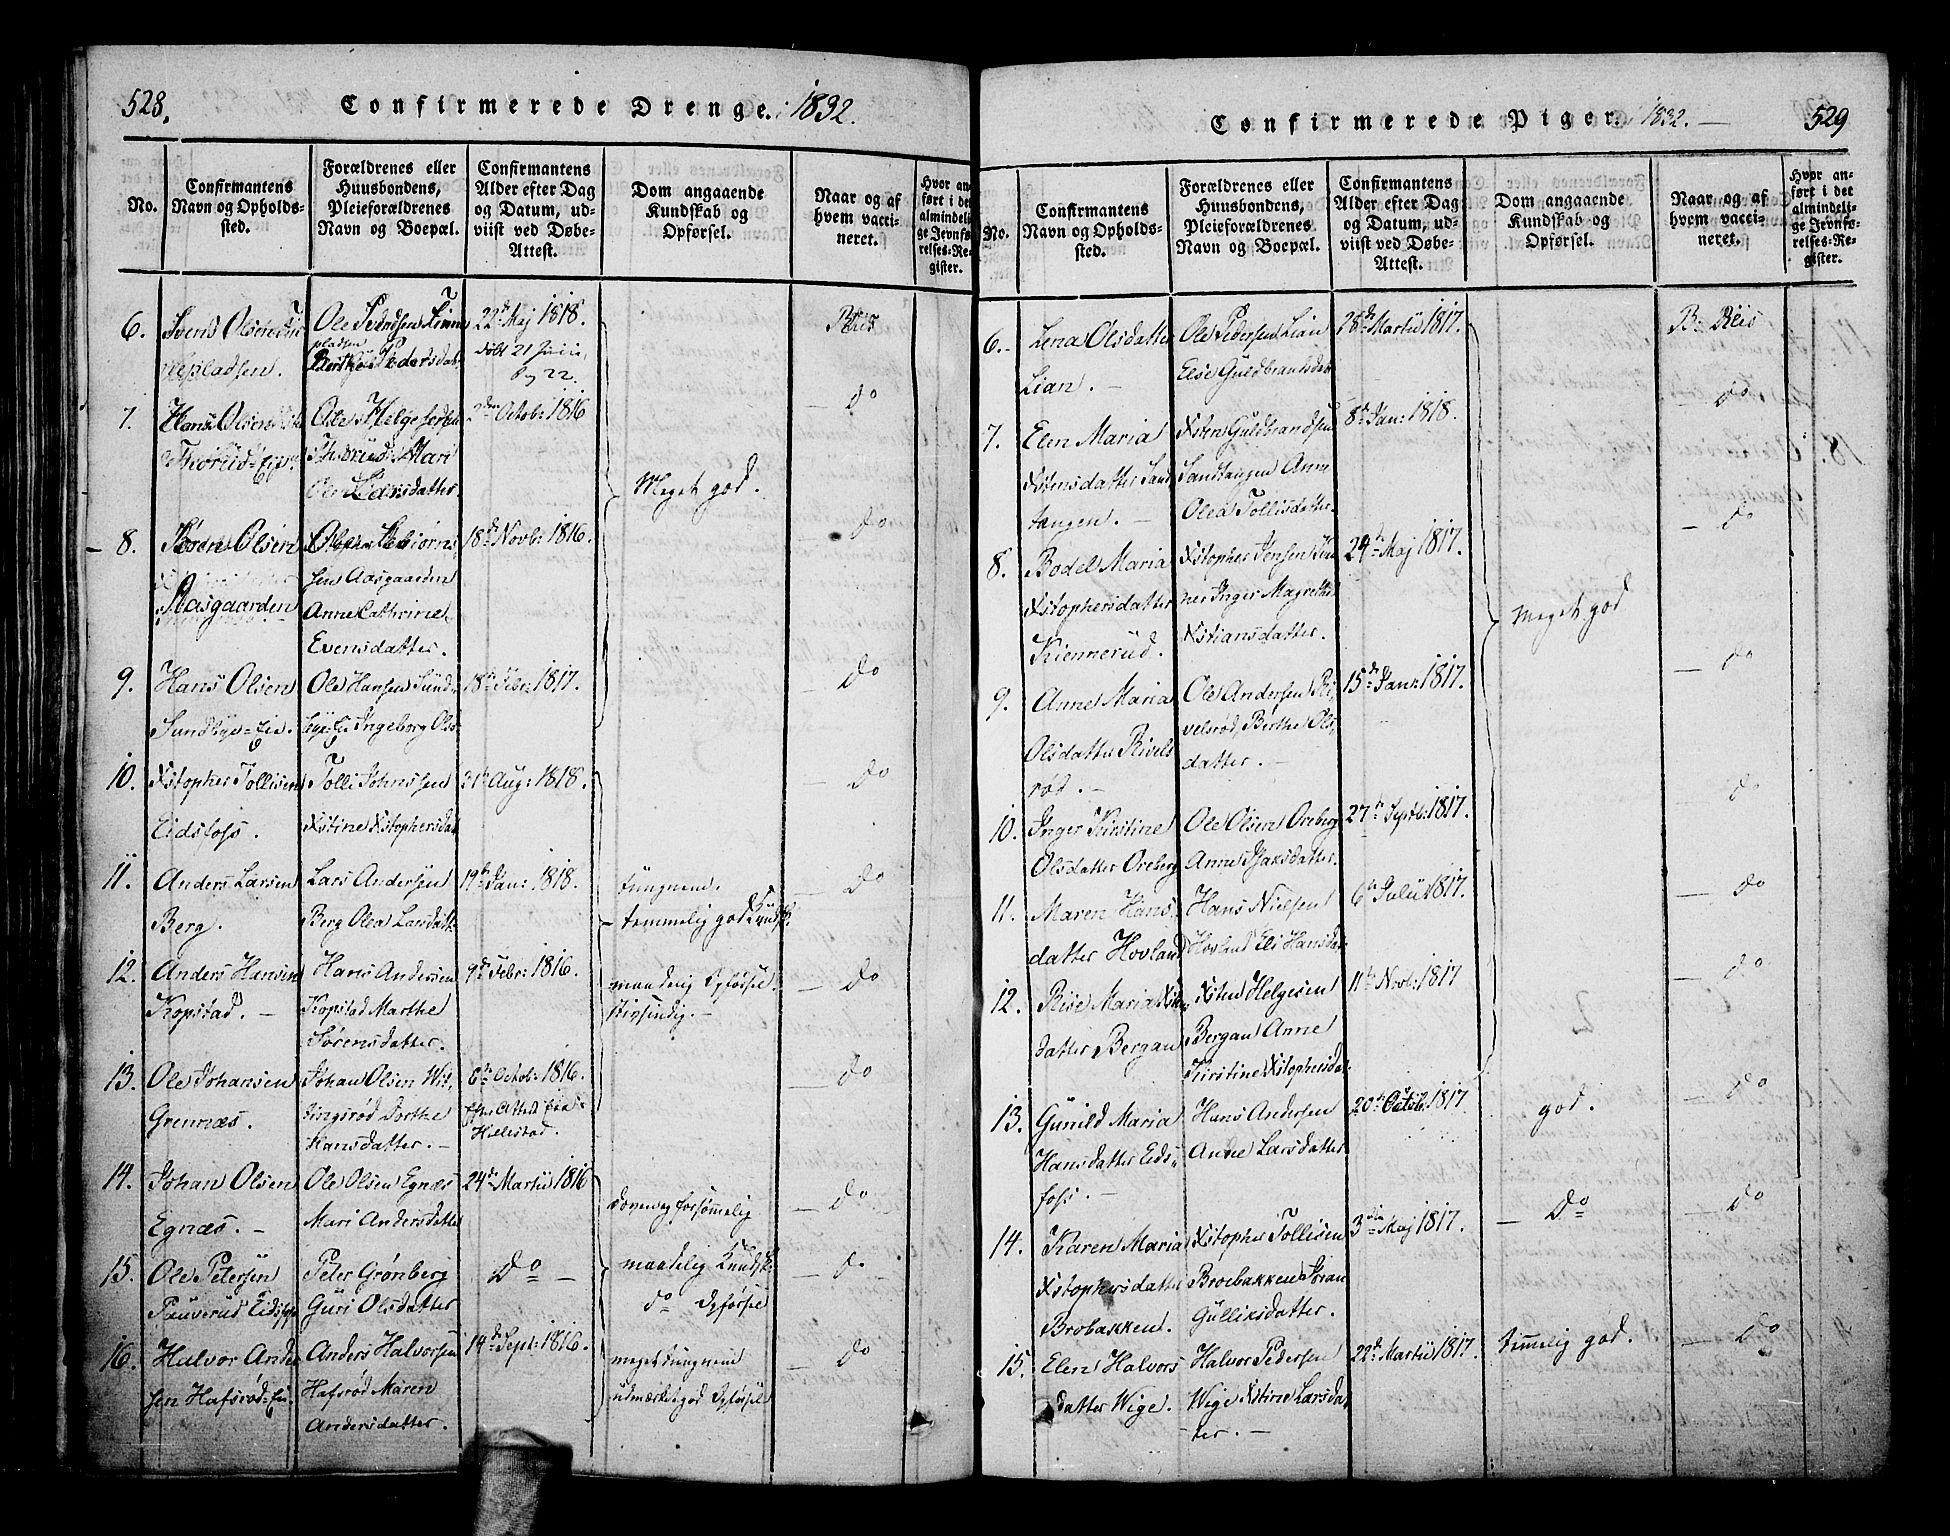 528.
Confirmerede Drenge. 1832.
No.
Confirmantens
Navn og Opholds-
sted.
Forældrenes eller
Huusbondens,
Pleieforældrenes
Navn og Boepæl.
Confirmantens
Alder efter Dag
og Datum, ud-
viist ved Døbe-
Attest.
Dom angaaende
Kundskab og
Opførsel.
Naar og af
hvem vacci-
neret.
Hvor an-
ført i det
almindeli-
ge Jevnfø-
relses-Re-
gister.
6.
Svend Olsen
pladsen.
Ole
pladsen
Berthe Pedersdat
22de Maj 1818.
døbt 21 Junii
Pag 22.
Reis
7.
Hans Olsen
Thorud Eje
Ole Helgesen
Thorud Mari
Larsdatter.
2den Octob: 1816
Do
Meget god.
8.
Søren Olsen
Aasgaarden
Ole
sen Aasgaarden
Anne Cathrine
Evensdatter.
18de Novb: 1816.
Do
9.
Hans Olsen
Sundbye=Eie.
Ole Hansen Sund,
bye=Ei Ingeborg Ols
18de Febr: 1817.
Do
10.
Xstopher Tollisen
Eidsfoss.
Tolli Johnssen
Xstine Xstophersdat
31te Aug: 1818.
Do
11.
Anders Larsen
Berg.
Lars Andersen
Berg Olea Larsdatt:
19de Jan: 1818.
tungnem.
temmelig god Kundsk:
Do
12.
Anders Hansen
Kopstad. -
Hans Andersen
Kopstad Marthe
Sørensdatter.
9de Febr: 1816.
maadelig Opførsel.
stivsindig. -
Do
13.
Ole Johansen
Grennæs.
Johan Olsen Wit,
tingsrød Dorthe
Hansdatter. -
6te Octob: 1816.
efter Attest fra
Hillestad.
Do
14.
Johan Olsen
Egnæs. -
Ole Olsen Egnæs
Mari Andersdatter
24de Martii 1816
doven og forsømmelig
Do
15.
Ole Petersen
Pauverud Eidsfoss
Peter Grønberg
Guri Olsdatter
Do -
maadelig Kundsk:
do Opførsel
do
16.
Halvor Ander
sen Hafsrød=Ei.
Anders Halvorsen
Hafsrød Maren
Andersdatter.
14de Sept: 1816.
meget tungnem
udmærket god Opførsel
Do
Confirmerede Piger. 1832. -
529
No.
Confirmantens
Navn og Opholds-
sted.
Forældrenes eller
Huusbondens,
Pleieforældrenes
Navn og Boepæl.
Confirmantens
Alder efter Dag
og Datum, ud-
viist ved Døbe-
Attest.
Dom angaaende
Kundskab og
Opførsel.
Naar og af
hvem vacci-
neret.
Hvor an-
ført i det
almindeli-
ge Jevnfø-
relses-Re-
gister.
6.
Lena Olsdatter
Lian. -
Ole Pedersen Lian
Else Guldbrandsdat
28de Martii 1817.
B. Reis
7.
Elen Maria
Xstensdatter Sand
tangen. -
Xsten Guldbrandsen
Sandtangen Anne
Olea Tollisdatter
8de Jan: 1818.
Do
8.
Bodel Maria
Xstophersdatter
Kiennerud.
Xstopher Jensen Kien
ner Inger Magrethe
Xstiansdatter.
24de Maj 1817.
Do
Meget god
9.
Anne Maria
Olsdatter Rivels
rød. -
Ole Andersen Ri,
velsrød, Berthe Ols,
datter. -
15de Janr: 1817.
Do
10.
Inger Kirstine
Olsdatter Oreberg
Ole Olsen Oreberg
Anne Isaksdatter.
27de Septb: 1817.
Do
11.
Maren Hans
datter Hovland
Hans Nielsen
Hovland Eli Hansda
6te Julii 1817.
Do
12.
Rise Maria Xsten
datter Bergan
Xsten Helgesen
Bergan Anne
Kirstine Xstophersdat
11te Novb: 1817
Do
13.
Gunild Maria
Hansdatter Eids,,
foss. -
Hans Andersen
Anne Larsdatter
20de Octob: 1817
god.
Do
14.
Karen Maria
Xstophersdatter
Brobakken.
Xstopher Tollisen
Broebakken Joran
Gulliksdatter.
3die Maj 1817.
Do
Do
15.
Elen Halvors
datter Wige.
Halvor Pedersen
Wige Xstine Larsda
ter. -
22de Martii 1817.
temmelig god.
Do